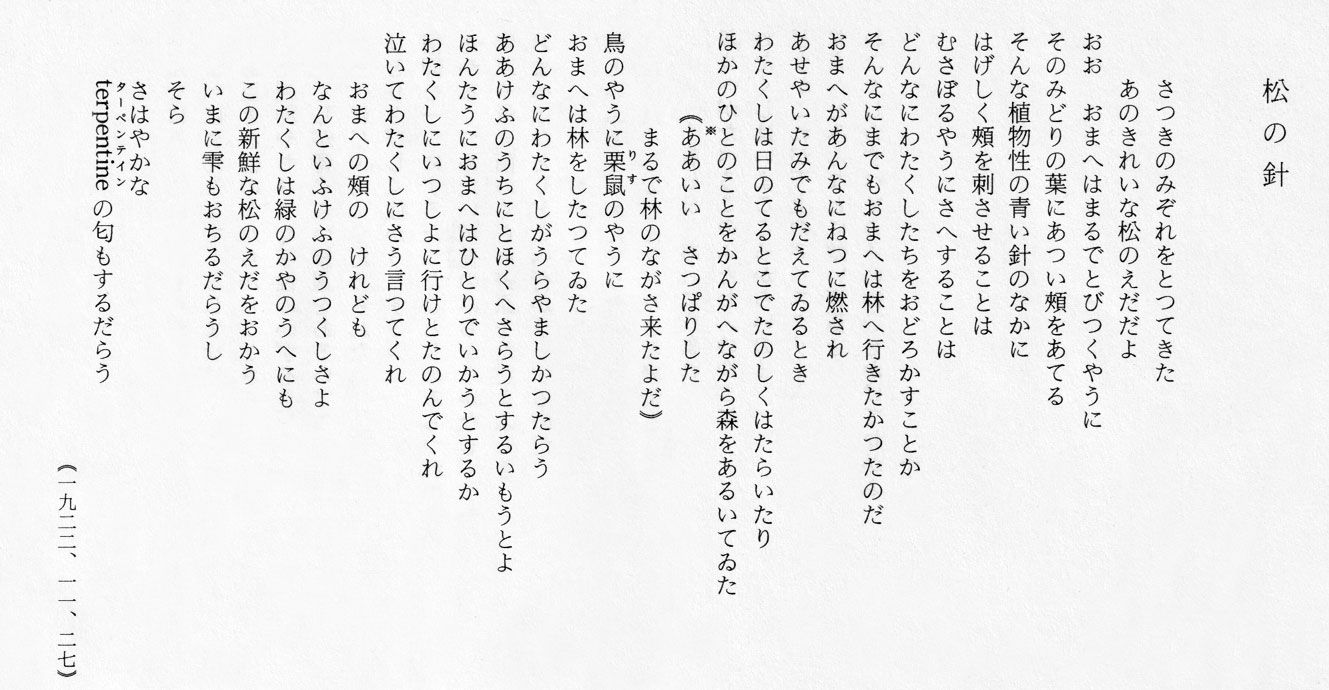 松の針
さつきのみぞれをとつてきた
あのきれいな松のえだだよ
おお　おまへはまるでとびつくやうに
そのみどりの葉にあつい頰をあてる
そんな植物性の青い針のなかに
はげしく頰を刺させることは
むさぼるやうにさへすることは
どんなにわたくしたちをおどろかすことか
そんなにまでもおまへは林へ行きたかつたのだ
おまへがあんなにねつに燃され
あせやいたみでもだえてゐるとき
わたくしは日のてるとこでたのしくはたらいたり
ほかのひとのことをかんがへながら森をあるいてゐた
※
⟪ああいい　さつぱりした
まるで林のながさ来たよだ⟫
鳥のやうに栗鼠のやうに
りす
おまへは林をしたつてゐた
どんなにわたくしがうらやましかつたらう
ああけふのうちにとほくへさらうとするいもうとよ
ほんたうにおまへはひとりでいかうとするか
わたくしにいつしよに行けとたのんでくれ
泣いてわたくしにさう言つてくれ
おまへの頰の　けれども
なんといふけふのうつくしさよ
わたくしは緑のかやのうへにも
この新鮮な松のえだをおかう
いまに雫もおちるだらうし
そら
さはやかな
ターペンテイン
terpentine の匂もするだらう
（一九二二、一一、二七）